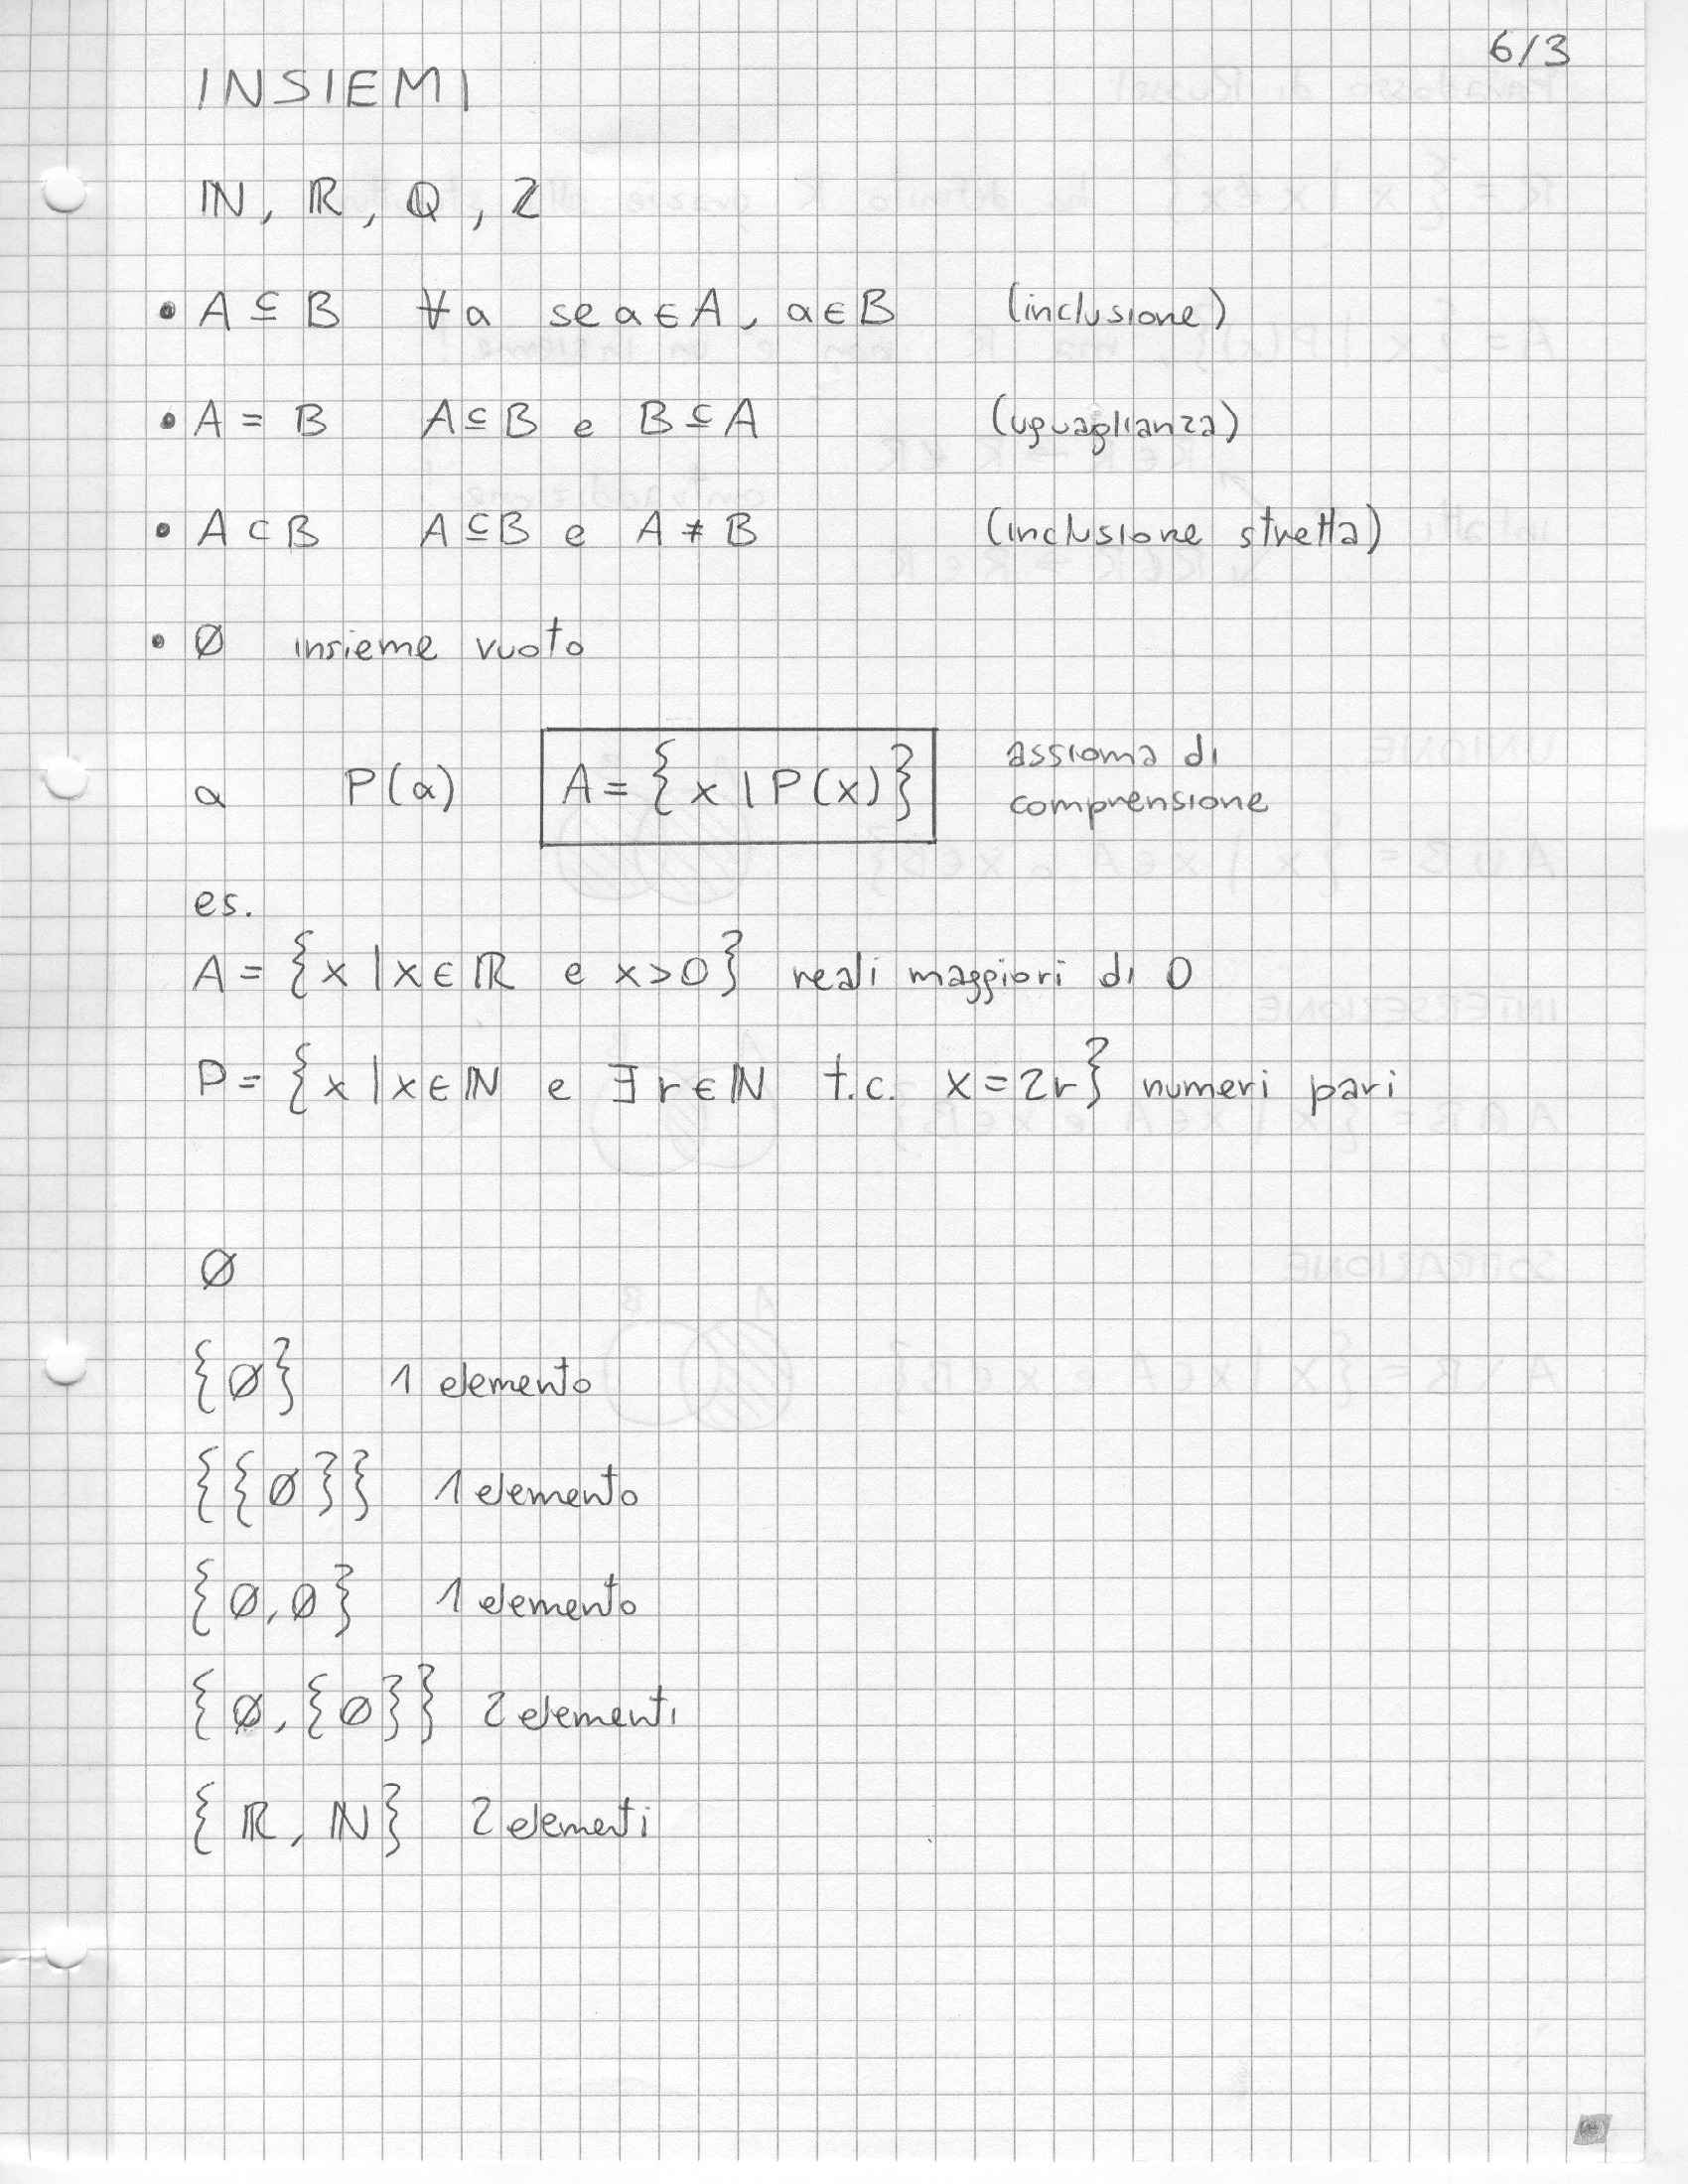 6/3
INSIEMI
ℕ, ℝ, ℚ, ℤ
• A ⊆ B ∀a se a ∈ A, a ∈ B (inclusione)
• A = B A ⊆ B e B ⊆ A (uguaglianza)
• A ⊂ B A ⊆ B e A ≠ B (inclusione stretta)
• ∅ insieme vuoto
a P(a) A = { x | P(x) } assioma di
comprensione
es.
A = { x | x ∈ ℝ e x > 0 } reali maggiori di 0
P = { x | x ∈ ℕ e ∃ r ∈ ℕ t.c. x = 2r } numeri pari
∅
{∅} 1 elemento
{{∅}} 1 elemento
{∅, ∅} 1 elemento
{∅, {∅}} 2 elementi
{ℝ, ℕ} 2 elementi